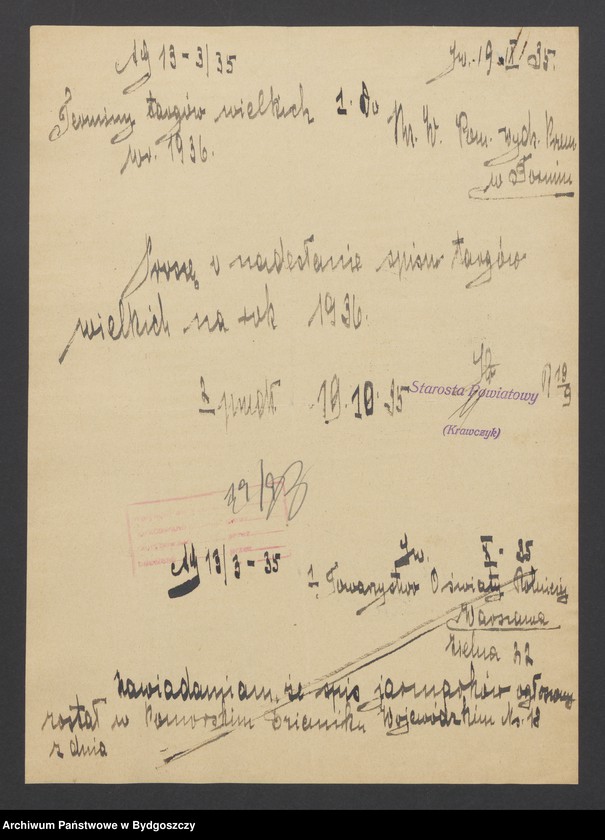 Ag 13-3/35
Jw. 19 IX 35.
Terminy targów wielkich
na r. 1936.
1. Do
Pom.
w Toruniu
Proszę o nadesłanie spisu targów
wielkich na rok 1936.
19.10.35
Starosta Powiatowy
(Krawczyk)
Ag 13/3-35
Jw. X-35
1. Towarzystwo Oświaty Rolniczej
Warszawa
Zielna 32
Zawiadamiam, że spis jarmarków ogłoszony
został w Pomorskim Dzienniku Wojewódzkim Nr. 18
z dnia
Archiwum Państwowe w Bydgoszczy